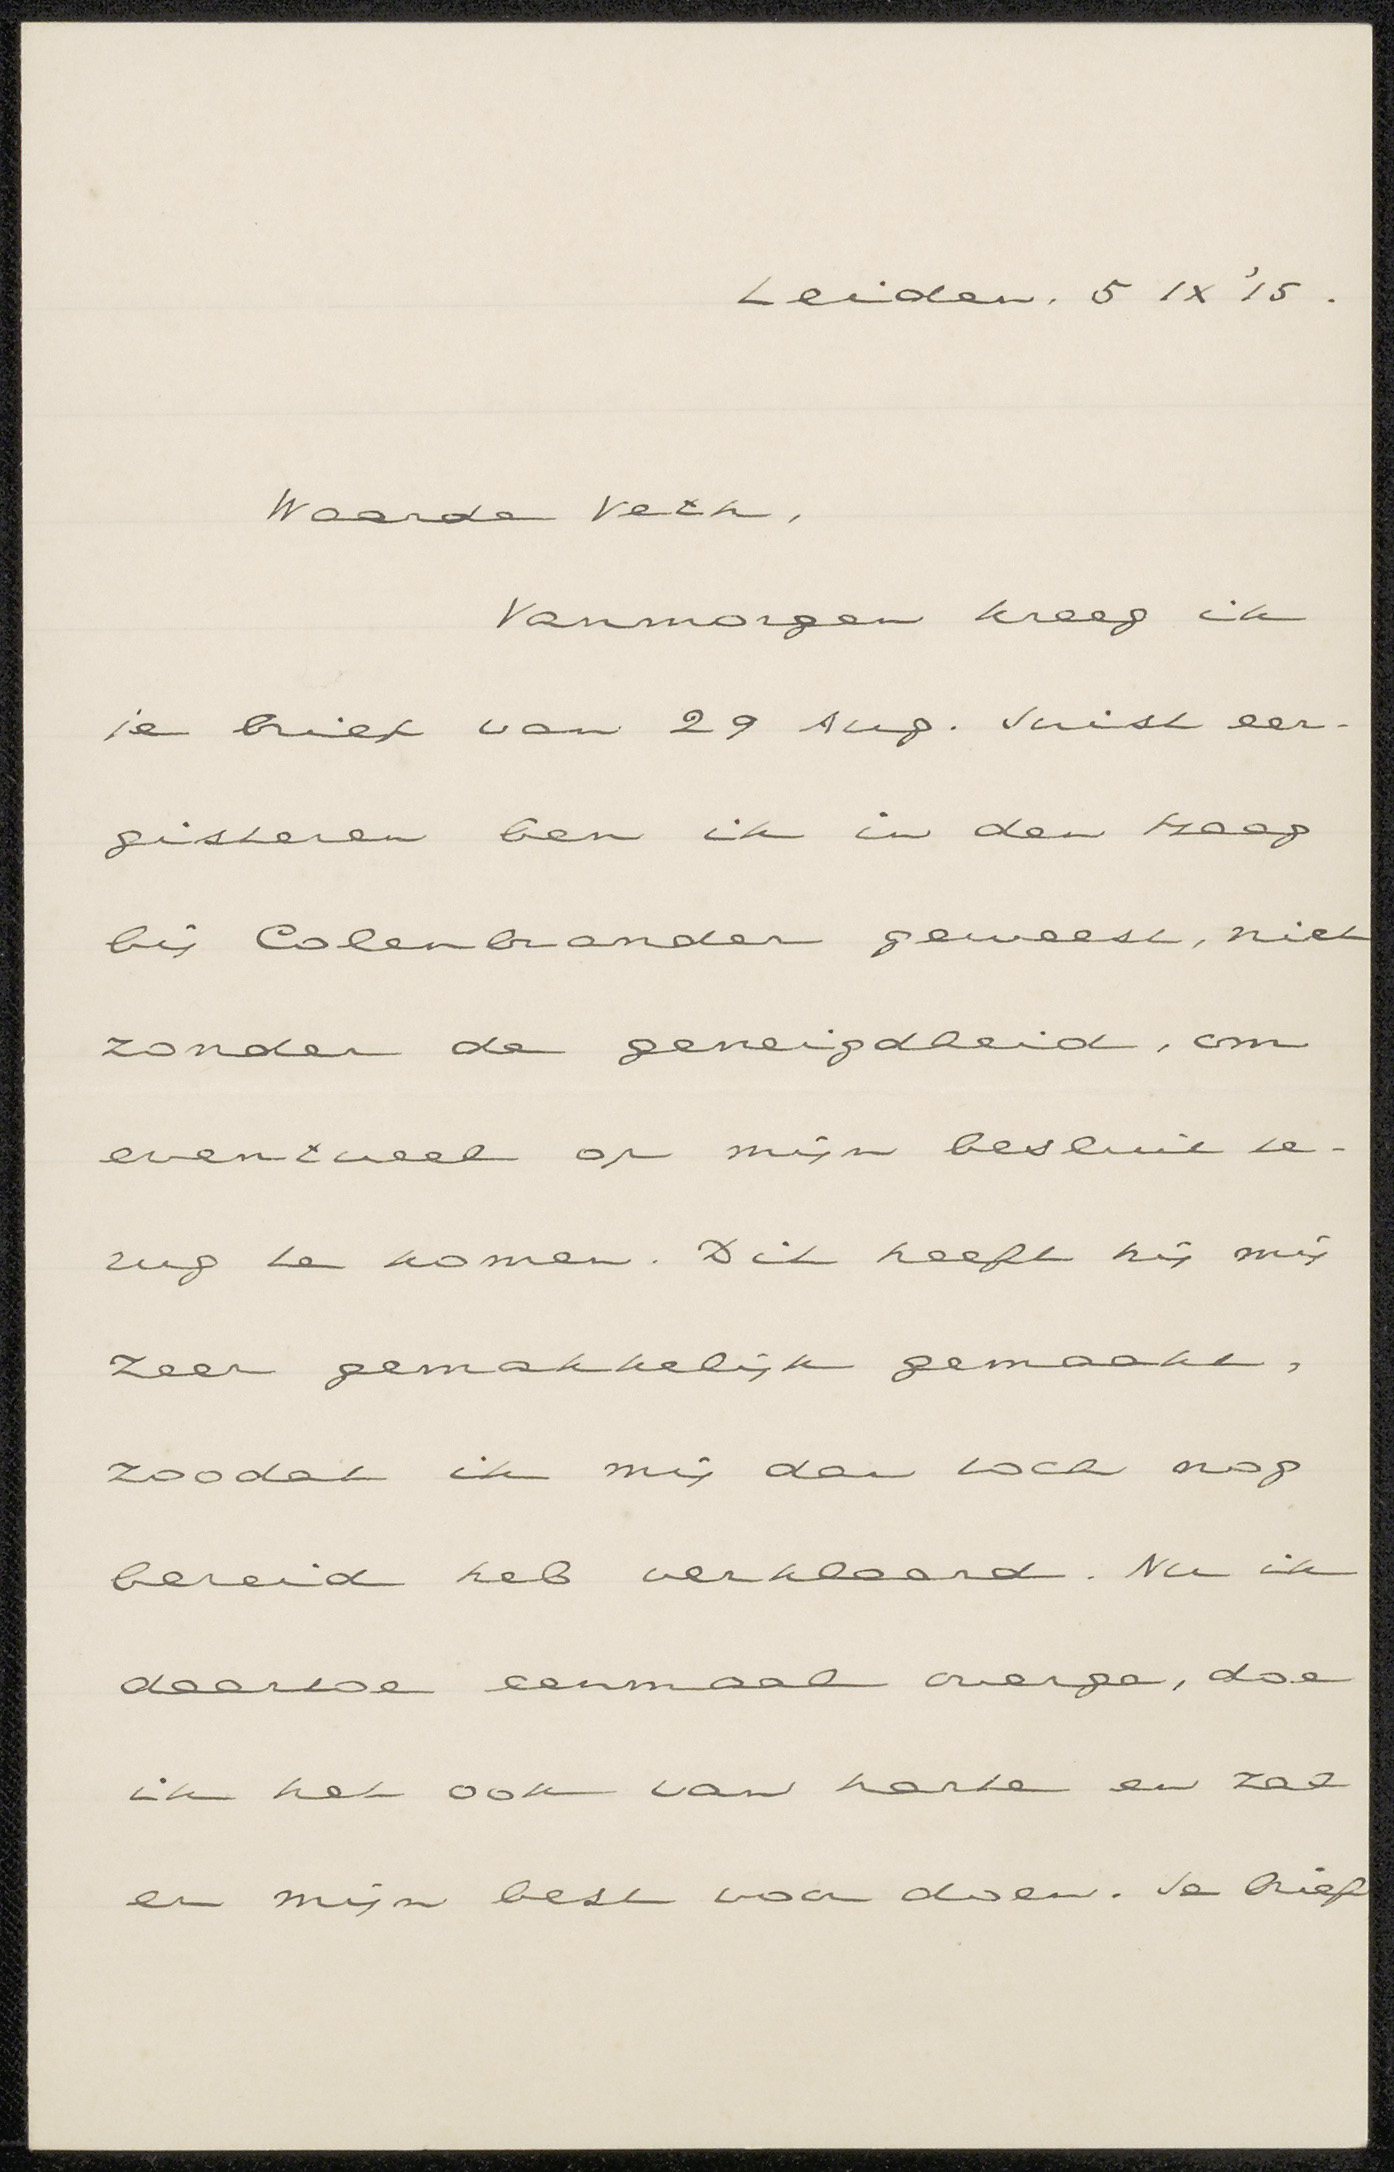 Leiden. 5 IX '15.
Waarde Veth,
Vanmorgen kreeg ik
je brief van 29 Aug. Juist eer-
gisteren ben ik in den Haag
bij Colenbrander geweest, niet
zonder de geneigdheid, om
eventueel op mijn besluit te-
rug te komen. Dit heeft hij mij
zeer gemakkelijk gemaakt,
zoodat ik mij dan toch nog
bereid heb verklaard. Nu ik
daartoe eenmaal overga, doe
ik het ook van harte en zal
er mijn best voor doen. Je brief